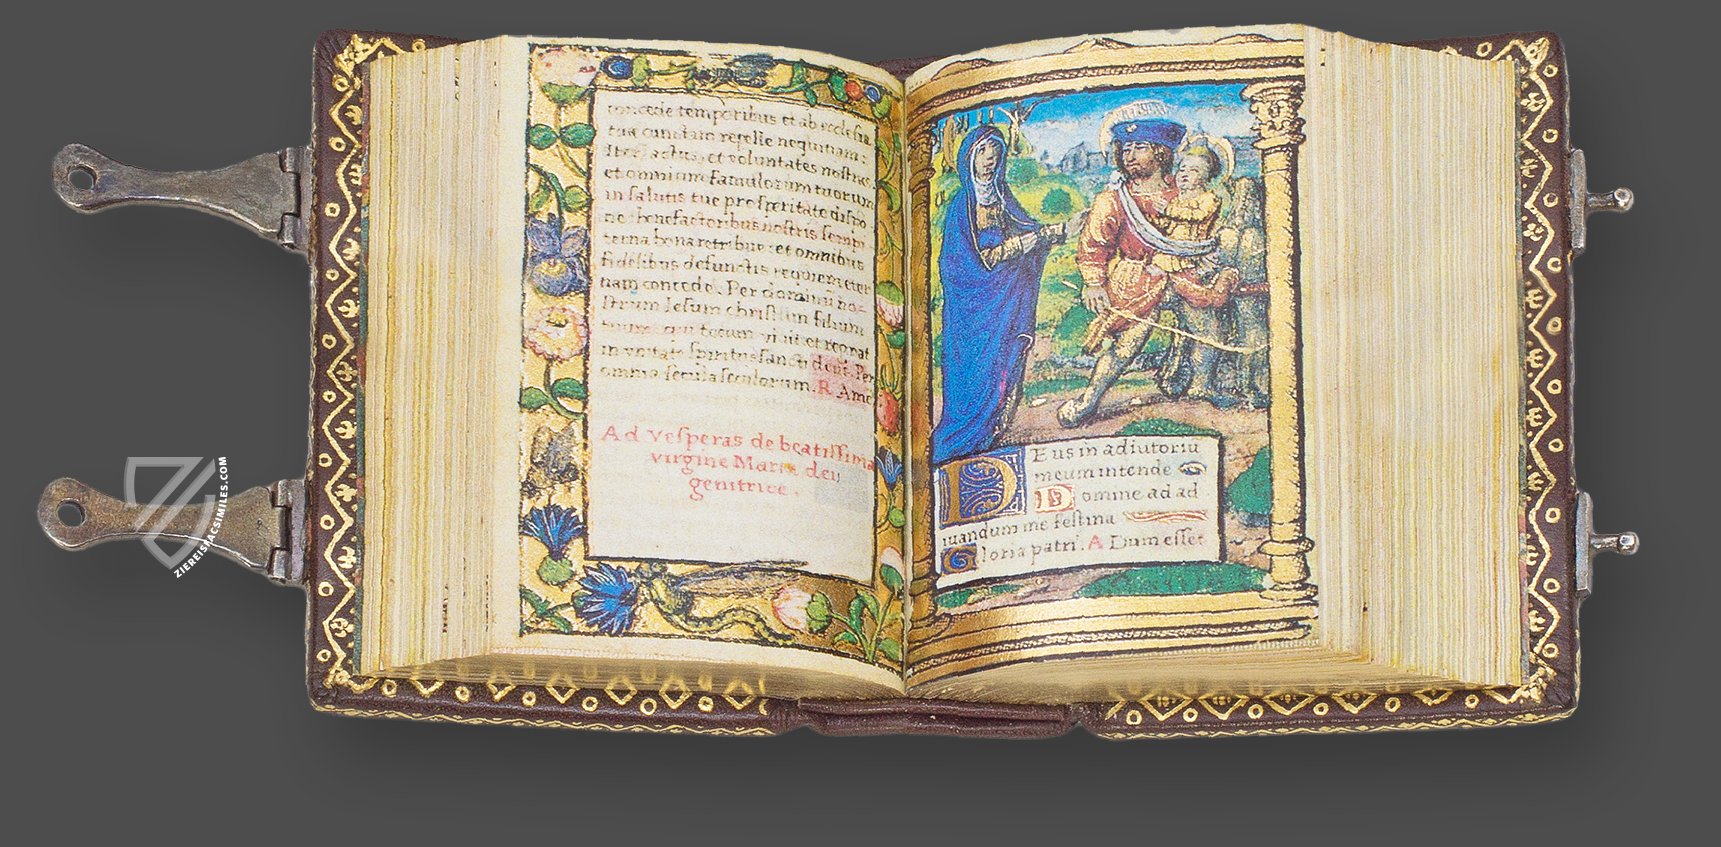 concede temporibus et ab ecclesia
tua cunctam repelle nequitiam:
Iter, actus, et voluntates nostras
et omnium famulorum tuorum
in salutis tue prosperitate dispo
ne: benefactoribus nostris sempi
terna bona retribue: et omnibus
fidelibus defunctis requiem eter
nam concede. Per dominũ no-
strum Iesum christum filium
tuum: qui tecum vivit et regnat
in unitate spiritus sancti deus. Per
omnia secula seculorum. R Ame
Ad vesperas de beatissima
virgine Maria dei
genitrice.
Deus in adiutoriũ
meum intende
Domine ad ad
iuvandum me festina
Gloria patri. A Dum esset
ZIEREISFACSIMILES.COM